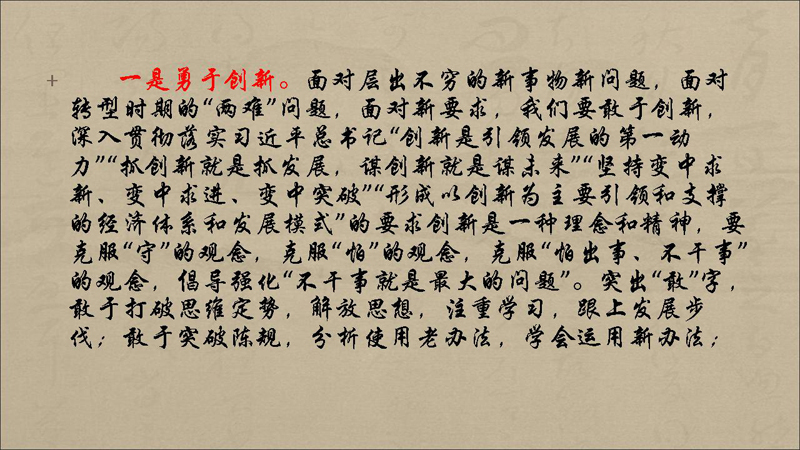 一是勇于创新。面对层出不穷的新事物新问题，面对
转型时期的“两难”问题，面对新要求，我们要敢于创新，
深入贯彻落实习近平总书记“创新是引领发展的第一动
力”“抓创新就是抓发展，谋创新就是谋未来”“坚持变中求
新、变中求进、变中突破”“形成以创新为主要引领和支撑
的经济体系和发展模式”的要求创新是一种理念和精神，要
克服“守”的观念，克服“怕”的观念，克服“怕出事、不干事”
的观念，倡导强化“不干事就是最大的问题”。突出“敢”字，
敢于打破思维定势，解放思想，注重学习，跟上发展步
伐；敢于突破陈规，分析使用老办法，学会运用新办法；